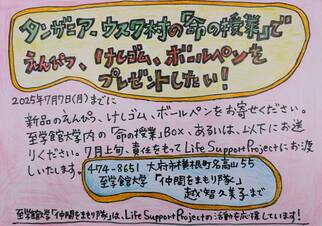 タンザニア、ウスワ村の「命の授業」で
えんぴつ、けしゴム、ボールペンを
プレゼントしたい！
2025年7月7日(月)までに
新品のえんぴつ、けしゴム、ボールペンをお寄せください。
至学館大学内の「命の授業」BOX、あるいは、以下にお送
りください。7月上旬、責任をもってLife Support Projectにお渡
しいたします。
474-8651 大府市横根町名高山55
至学館大学「仲間をまもり隊」
越智久美子まで
至学館大学「仲間をまもり隊」は、Life Support Projectの活動を応援しています！